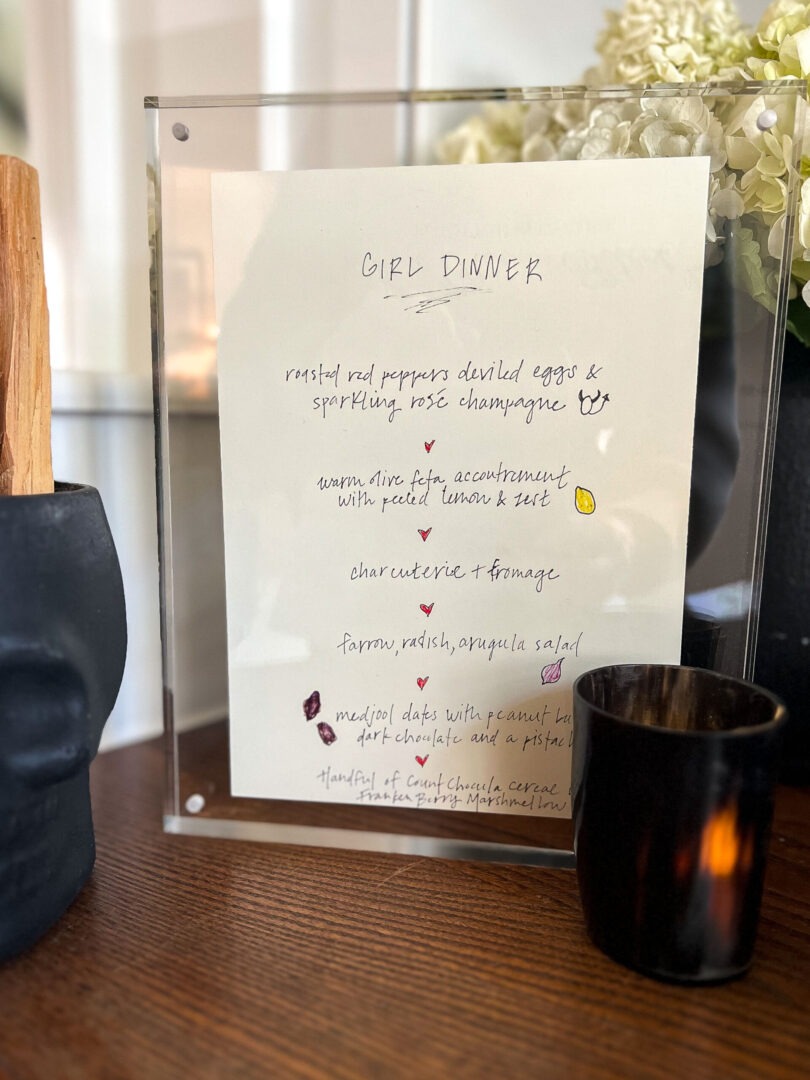 GIRL DINNER
roasted red peppers deviled eggs &
sparkling rosé champagne
warm olive feta accoutrement
with peeled lemon & zest
charcuterie + fromage
farrow, radish, arugula salad
medjool dates with peanut bu
dark choclate and a pistach
Handful of Count Chocula cereal
Franken Berry Marshmellow